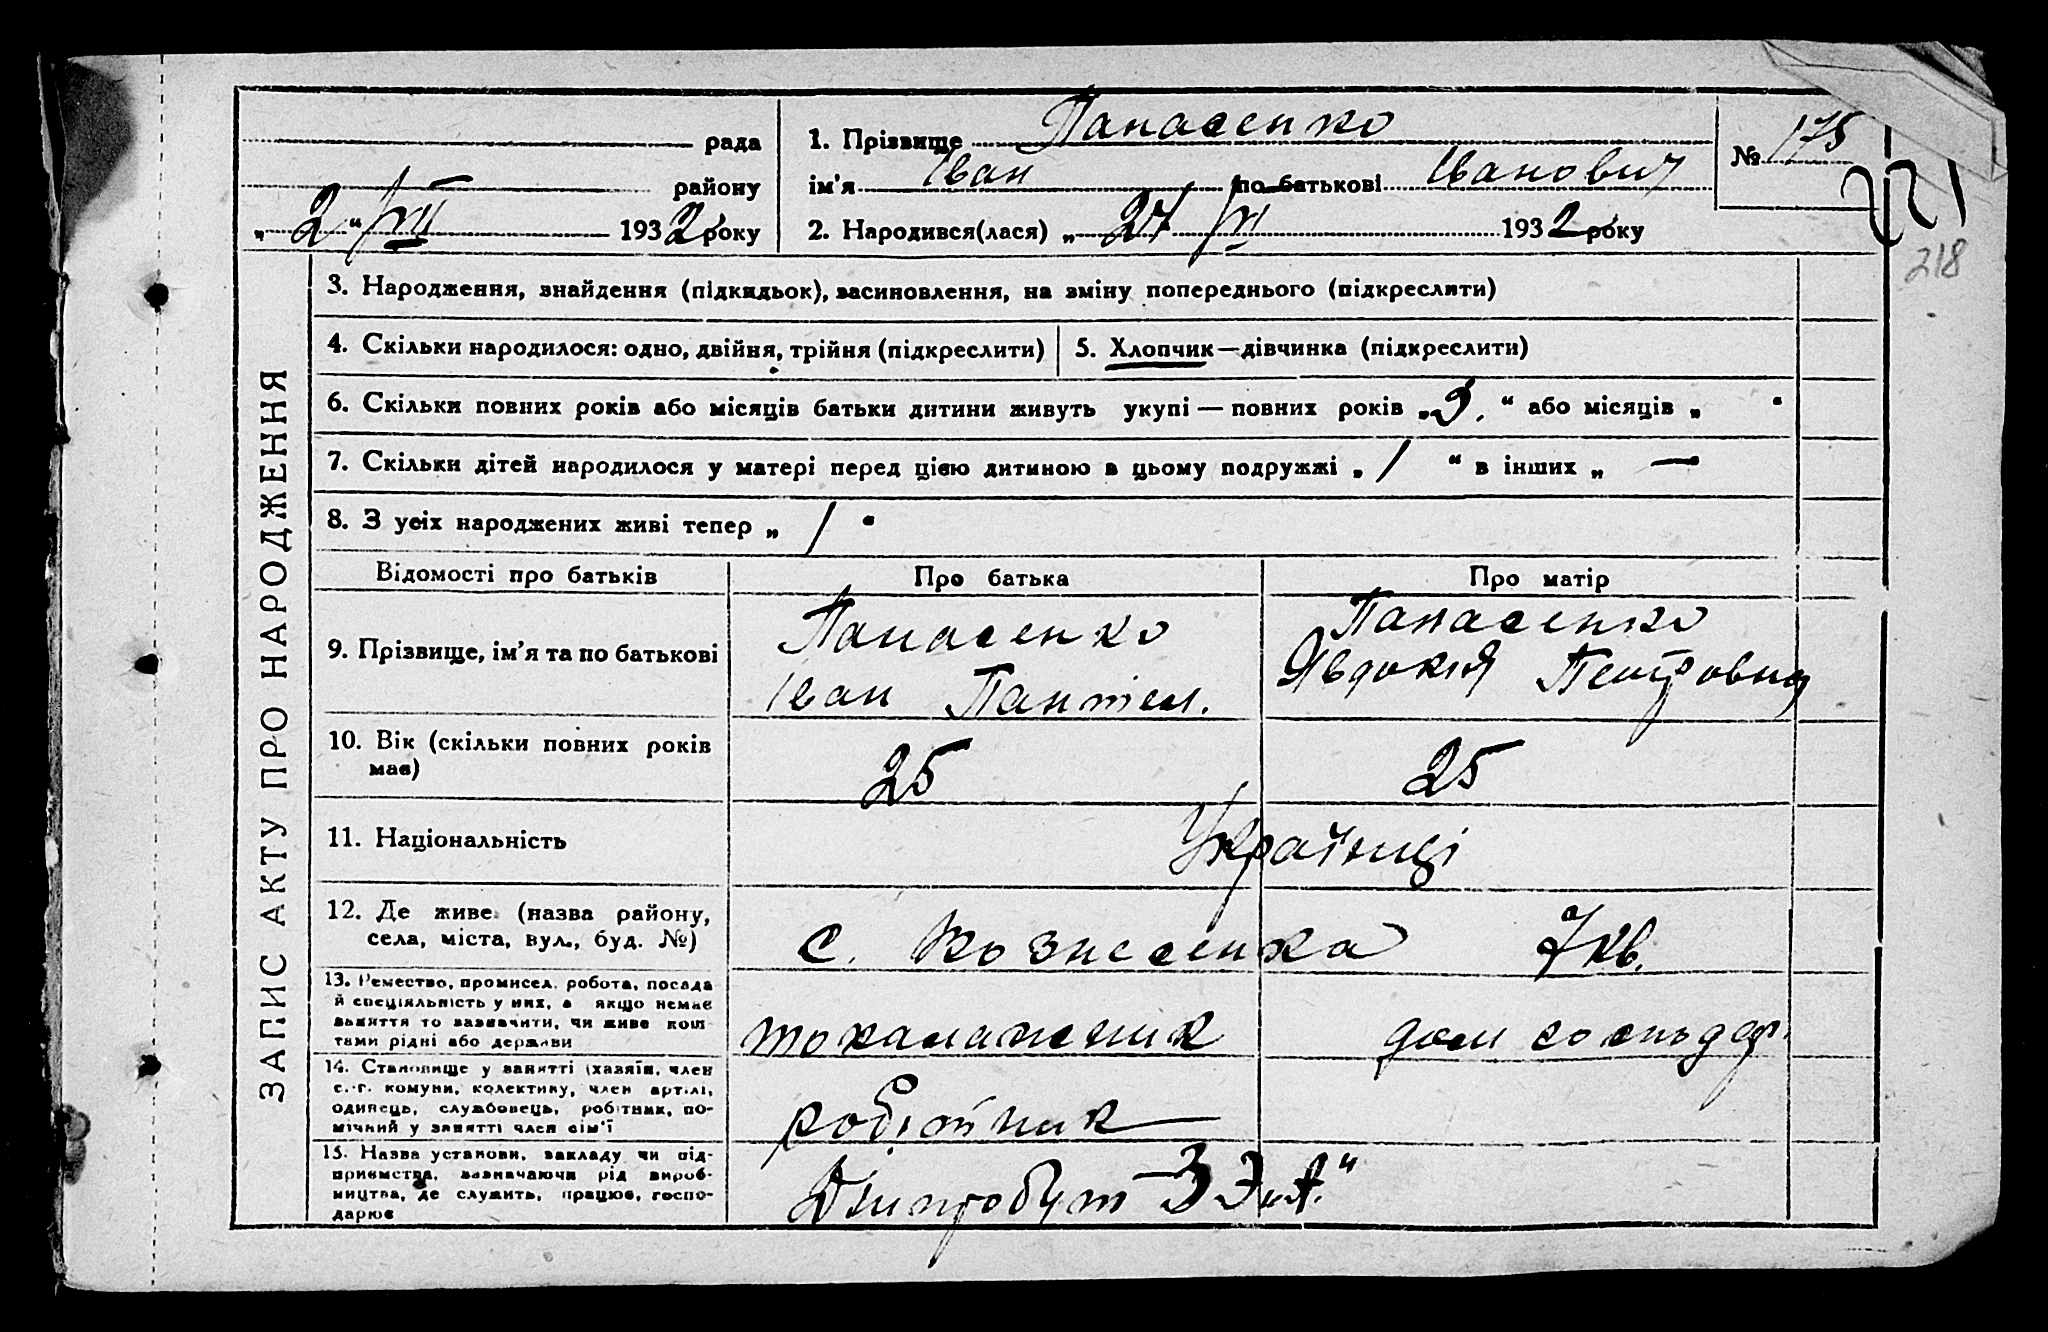 рада
району
„ 2 “ VII 1932 року
1. Прізвище Панасенко
ім'я Іван по батькові Іванович
2. Народився(лася) „ 27 VI 1932 року
№ 175
221
218
ЗАПИС АКТУ ПРО НАРОДЖЕННЯ
3. Народження, знайдення (підкидьок), засиновлення, на зміну попереднього (підкреслити)
4. Скільки народилося: одно, двійня, трійня (підкреслити)
5. Хлопчик—дівчинка (підкреслити)
6. Скільки повних років або місяців батьки дитини живуть укупі — повних років „3.“ або місяців „
7. Скільки дітей народилося у матері перед цією дитиною в цьому подружжі „ 1 “ в інших „ —
8. З усіх народжених живі тепер „ 1 “
Відомості про батьків
Про батька
Про матір
9. Прізвище, ім'я та по батькові
Панасенко
Іван Пантел.
Панасенко
Явдокія Петровна
10. Вік (скільки повних років
має)
25
25
11. Національність
Українці
12. Де живе (назва району,
села, міста, вул., буд. №)
с. Вознесенка 7 кв.
13. Ремество, промисел, робота, посада
й спеціяльність у них, а якщо немає
заняття то зазначити, чи живе кош-
тами рідні або держави
такелажник
дом господар.
14. Становище у занятті (хазяїн, член
с.-г. комуни, колективу, член артілі,
одинець, службовець, робітник, по-
мічний у занятті член сім'ї
робітник
15. Назва установи, закладу чи під-
приємства, зазначаючи рід вироб-
ництва, де служить, працює, госпо-
дарює
Дніпробут